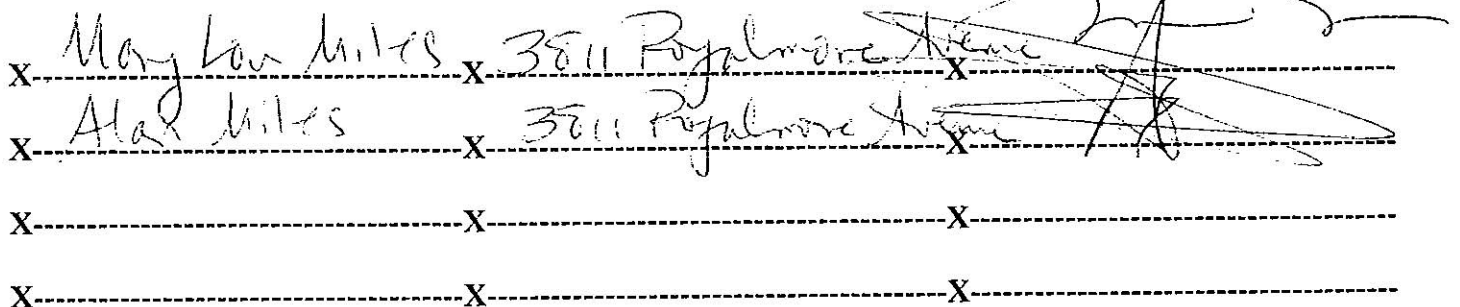 X Mary Lou Miles X 3811 Royalmore Avenue X
X Alan Miles X 3811 Royalmore Avenue X
X X X
X X X